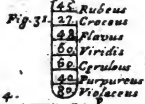 45 Rubeus
Fig. 31. 27 Croceus
48 Flavus
60 Viridis
60 Cerulous
40 Purpureus
80 Violaceus
4.